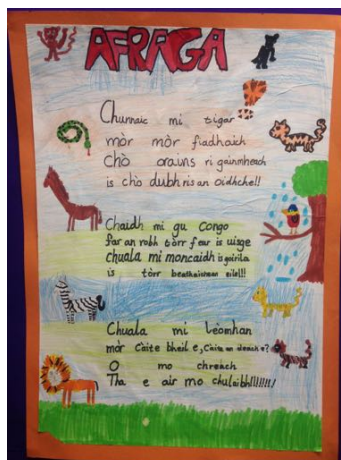 AFRAGA
Chunnaic mi tìgar
mòr mòr fiadhaich
Chò orains ri gainmheach
is chò dubh ris an Oidhche!!
Chaidh mi gu Congo
far an robh tòrr feur is uisge
chuala mi moncaidh is goirila
is tòrr beathaichean eile!!
Chuala mi leòmhan
mòr Càite bheil e, Càite an deach e?
O mo chreach
Tha e air mo chulaibh!!!!!!!